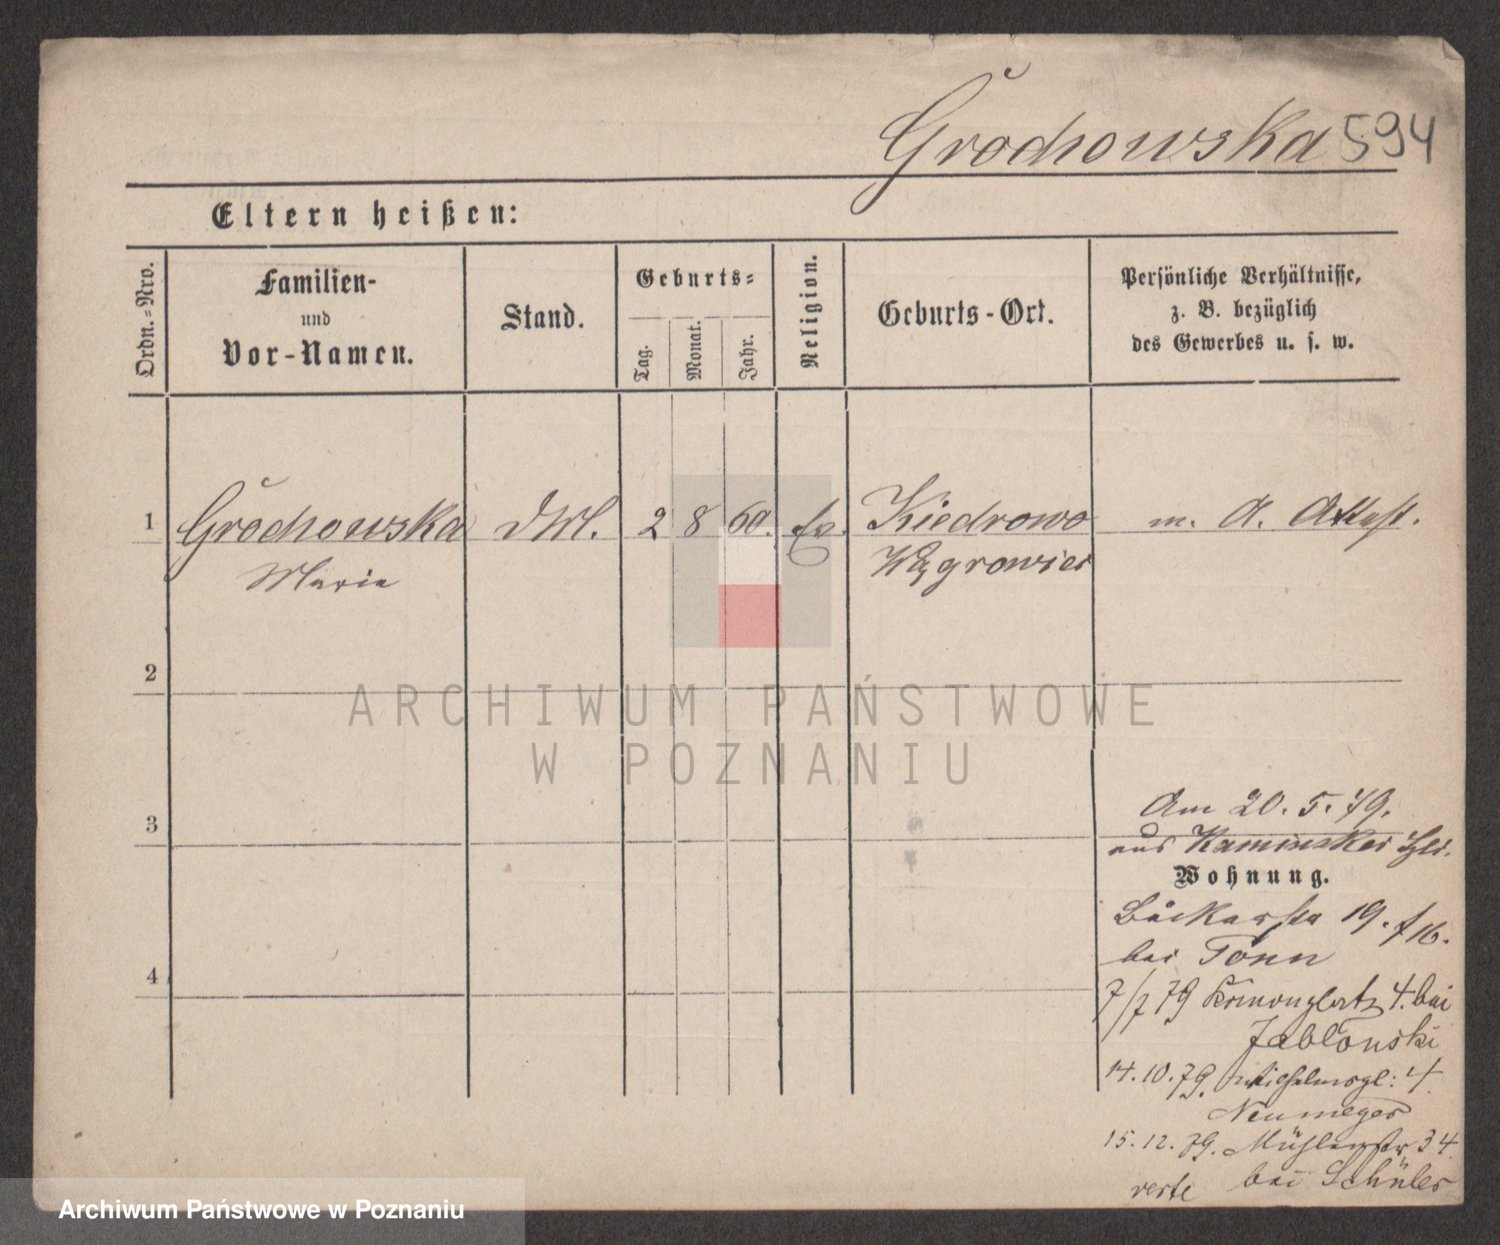 Grochowska 594
Eltern heißen:
Ordn.-Nro.
Familien-
und
Vor-Namen.
Stand.
Geburts-
Tag.
Monat.
Jahr.
Religion.
Geburts-Ort.
Persönliche Verhältnisse,
z. B. bezüglich
des Gewerbes u. s. w.
1 Grochowska 2 8 60. Kiedrowo m. A. Attest.
Marie Wągrowiec
2
ARCHIWUM PAŃSTWOWE
W POZNANIU
3
Am 20. 5. 79.
aus
Wohnung.
Bäckerstr 19. f 16.
bei Tonn
4
7/7 79 4. bei
Jabłonski
14. 10. 79. Wilhelmspl: 4
Neumeyer
15. 12. 79. Mühlenstr 34
bei Schüler
verte
Archiwum Państwowe w Poznaniu